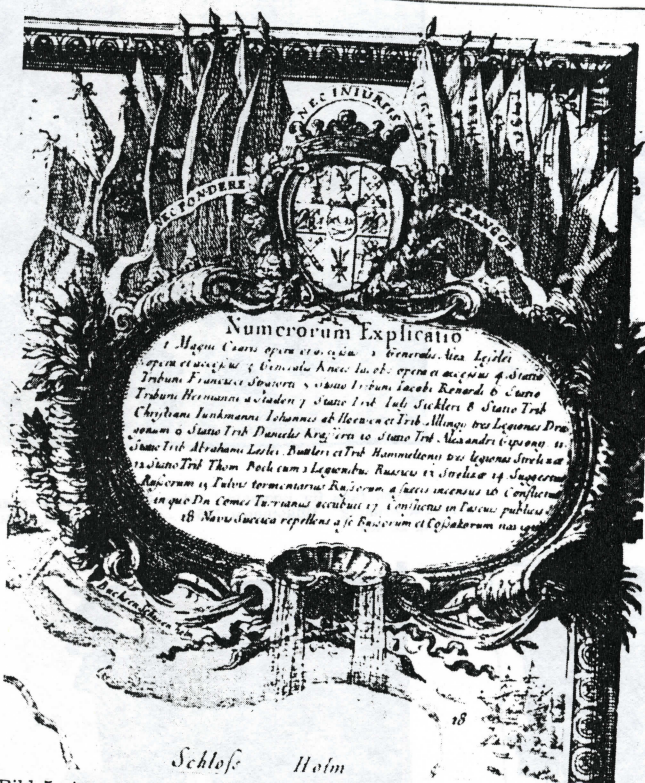 NEC INIURIIS
NEC PONDERE
FRANGOR
Numerorum Explicatio
1 Magni Czaris opera et accessus 2 Generalis Alex Leslei
opera et accessus 3 Generalis Kneis Iacobi opera et accessus 4 Statio
Tribuni Francisci 5 Statio Tribuni Iacobi Renardi 6 Statio
Tribuni Hermanni a Staden 7 Statio Trib Sickleri 8 Statio Trib
Christiani Iunkmanni Iohannis ab Hoewen et Trib Allingii tres Legiones Dra
gonum 9 Statio Trib Danielis 10 Statio Trib Alexandri Gipsony 11
Statio Trib Abrahami Leslei Buttleri et Trib Hammeltonij tres legiones Strelizæ
12 Statio Trib Thom Boeli cum 2 Legionibus Russicis 13 Strelizæ 14 Suggestus
Russorum 15 Pulvis tormentarius Russorum a suecis incensus 16 Conflictus
in quo Dn Comes Turrianus occubuit 17 Conflictus in Pascuis publicis
18 Navis Suecica repellens a se Russorum et Cossakorum nav
18
Schloss Holm
Bild 5